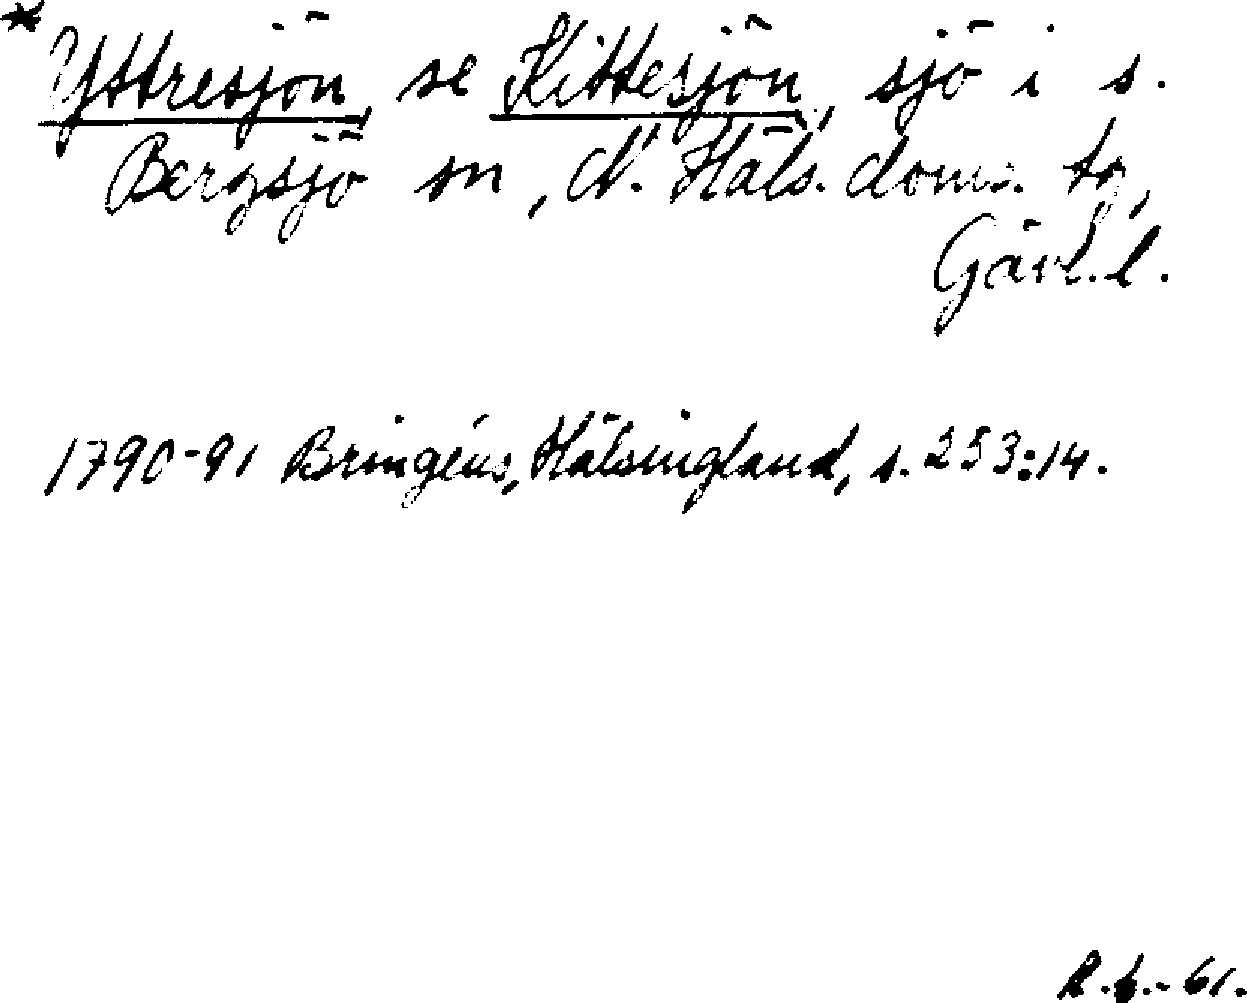 * Yttresjön, se Kittesjön, sjö i s.
Bergsjö sn, N. Häls. doms. tg,
Gävl. l.
1790-91 Bringéus, Hälsingland, s. 253:14.
R.f.-61.